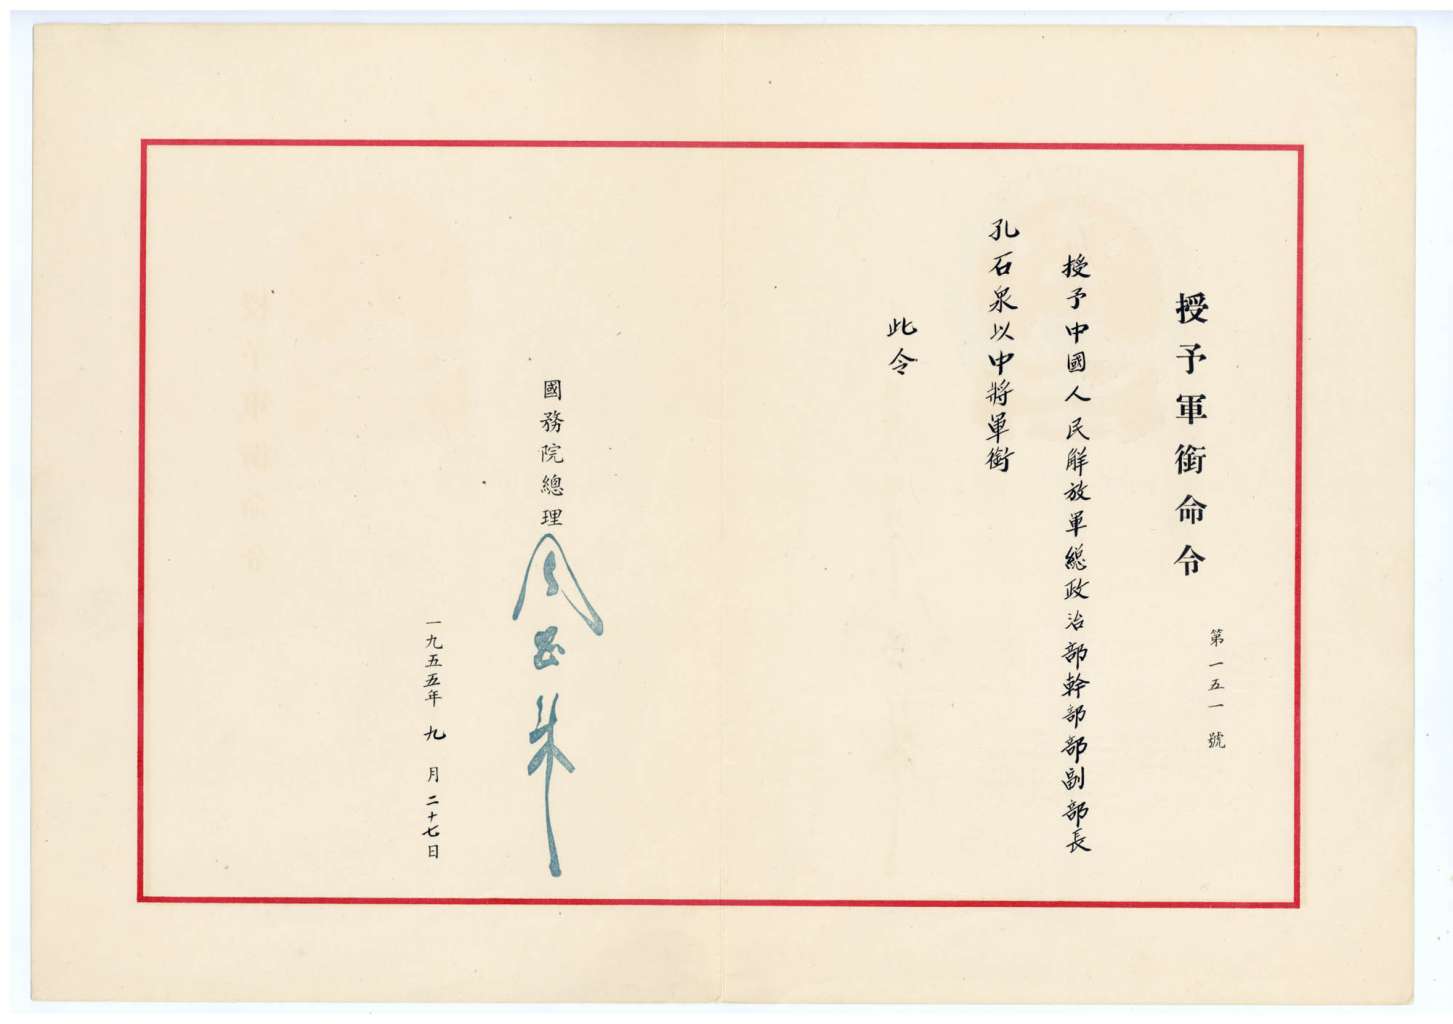 授予軍銜命令
第一五一號
授予中國人民解放軍總政治部幹部部副部長
孔石泉以中將軍銜
此令
國務院總理
周恩来
一九五五年九月二十七日